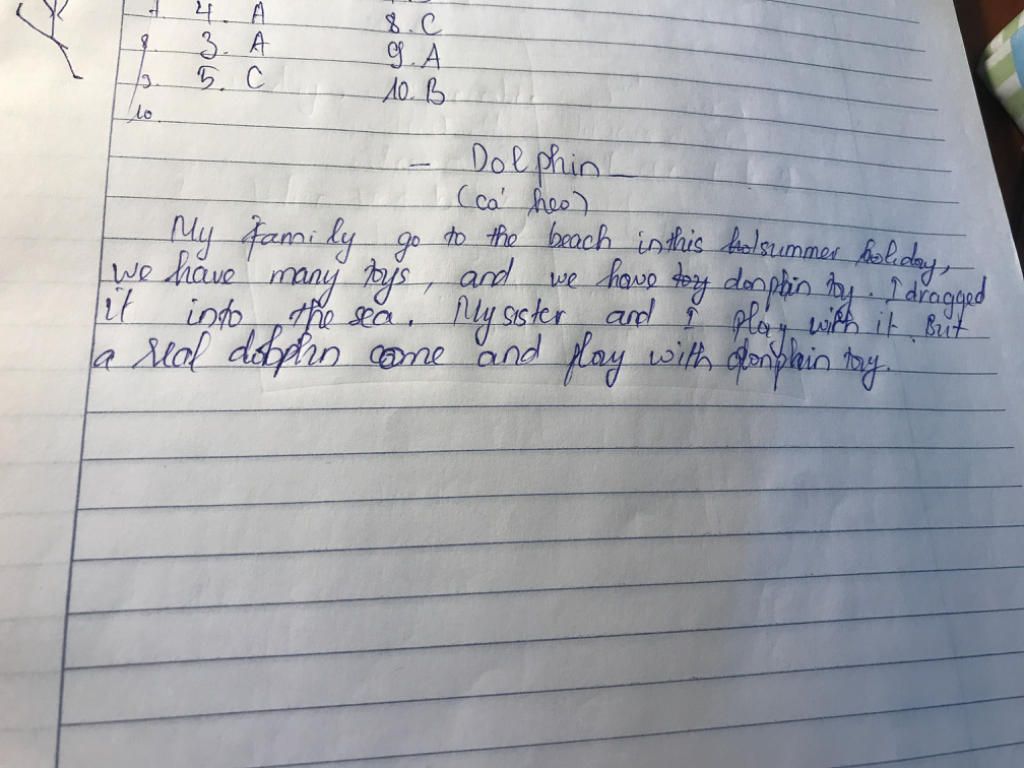 7. 4. A 8. C
8. 3. A 9. A
9. 5. C 10. B
10.
- Dolphin -
(cá heo)
My family go to the beach in this summer holiday,
we have many toys, and we have donphin toy. I dragged
it into the sea. My sister and I play with it. But
a real dolphin come and play with donphin toy.